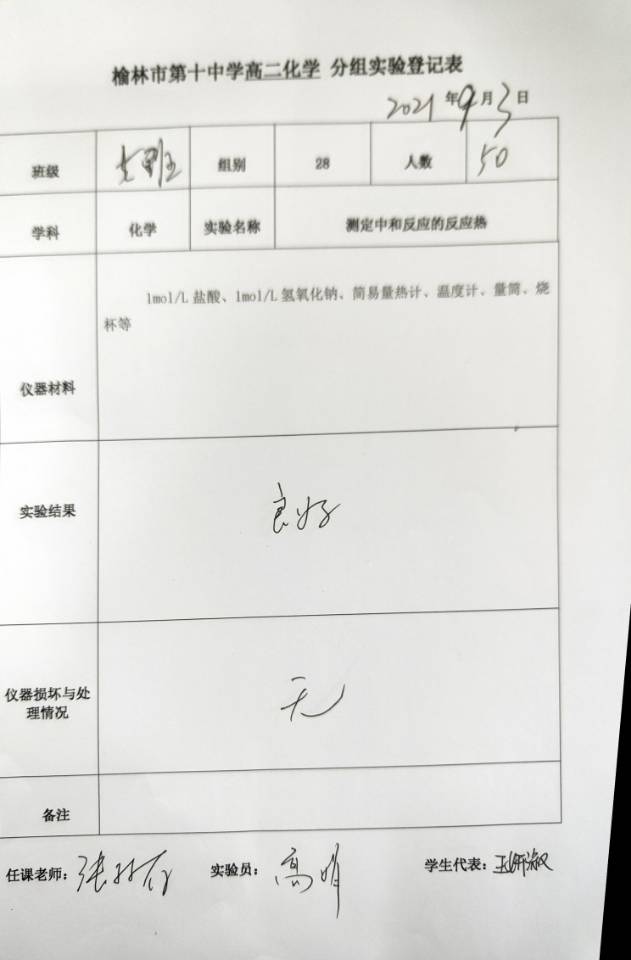 榆林市第十中学高二化学 分组实验登记表
2021 年 9 月 3 日
班级 组别 28 人数 50
学科 化学 实验名称 测定中和反应的反应热
仪器材料 1mol/L 盐酸、1mol/L 氢氧化钠、简易量热计、温度计、量筒、烧
杯等
实验结果 良好
仪器损坏与处
理情况 无
备注
任课老师: 实验员: 高明 学生代表: 王妍淑